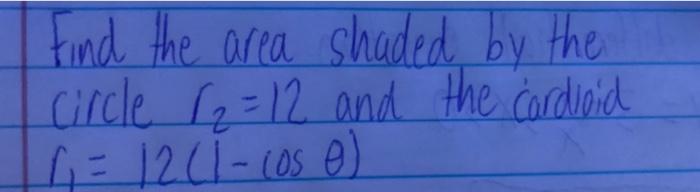 Find the area shaded by the
circle r₂ = 12 and the cardioid
r₁ = 12(1 - cos θ)